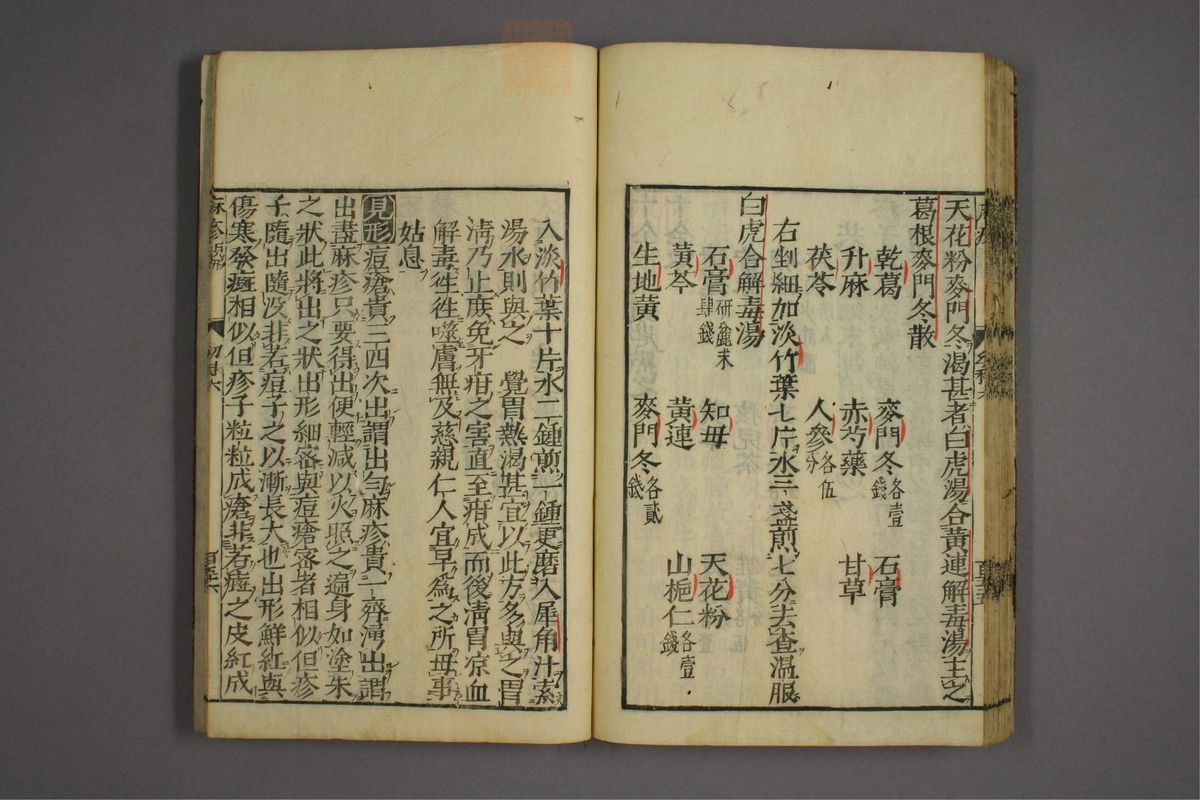 天花粉麥門冬渴甚者白虎湯合黃連解毒湯主之
葛根麥門冬散
乾葛 麥門冬各壹錢 石膏
升麻 赤芍藥 甘草
茯苓 人參各伍分
右剉細加淡竹葉七片水三盞煎七分去查溫服
白虎合解毒湯
石膏研麄末肆錢 知毋 天花粉
黃芩 黃連 山梔仁各壹錢
生地黃 麥門冬各貳錢
入淡竹葉十片水二鍾煎一鍾更磨入犀角汁素
湯水則與之 覺胃熱渴甚宜以此方多與之胃
淸乃止庶免牙疳之害直至疳成而後淸胃凉血
解毒徃徃噬膚無及慈親仁人宜早爲之所毋事
姑息
見形 痘瘡貴三四次出謂出勻麻疹貴一齊湧出謂
出盡麻疹只要得出便輕減以火照之遍身如塗朱
之狀此將出之狀出形細密與痘瘡密者相似但疹
子隨出隨沒非若痘子之以漸長大也出形鮮紅與
傷寒發癍相似但疹子粒粒成瘡非若癍之皮紅成
麻疹